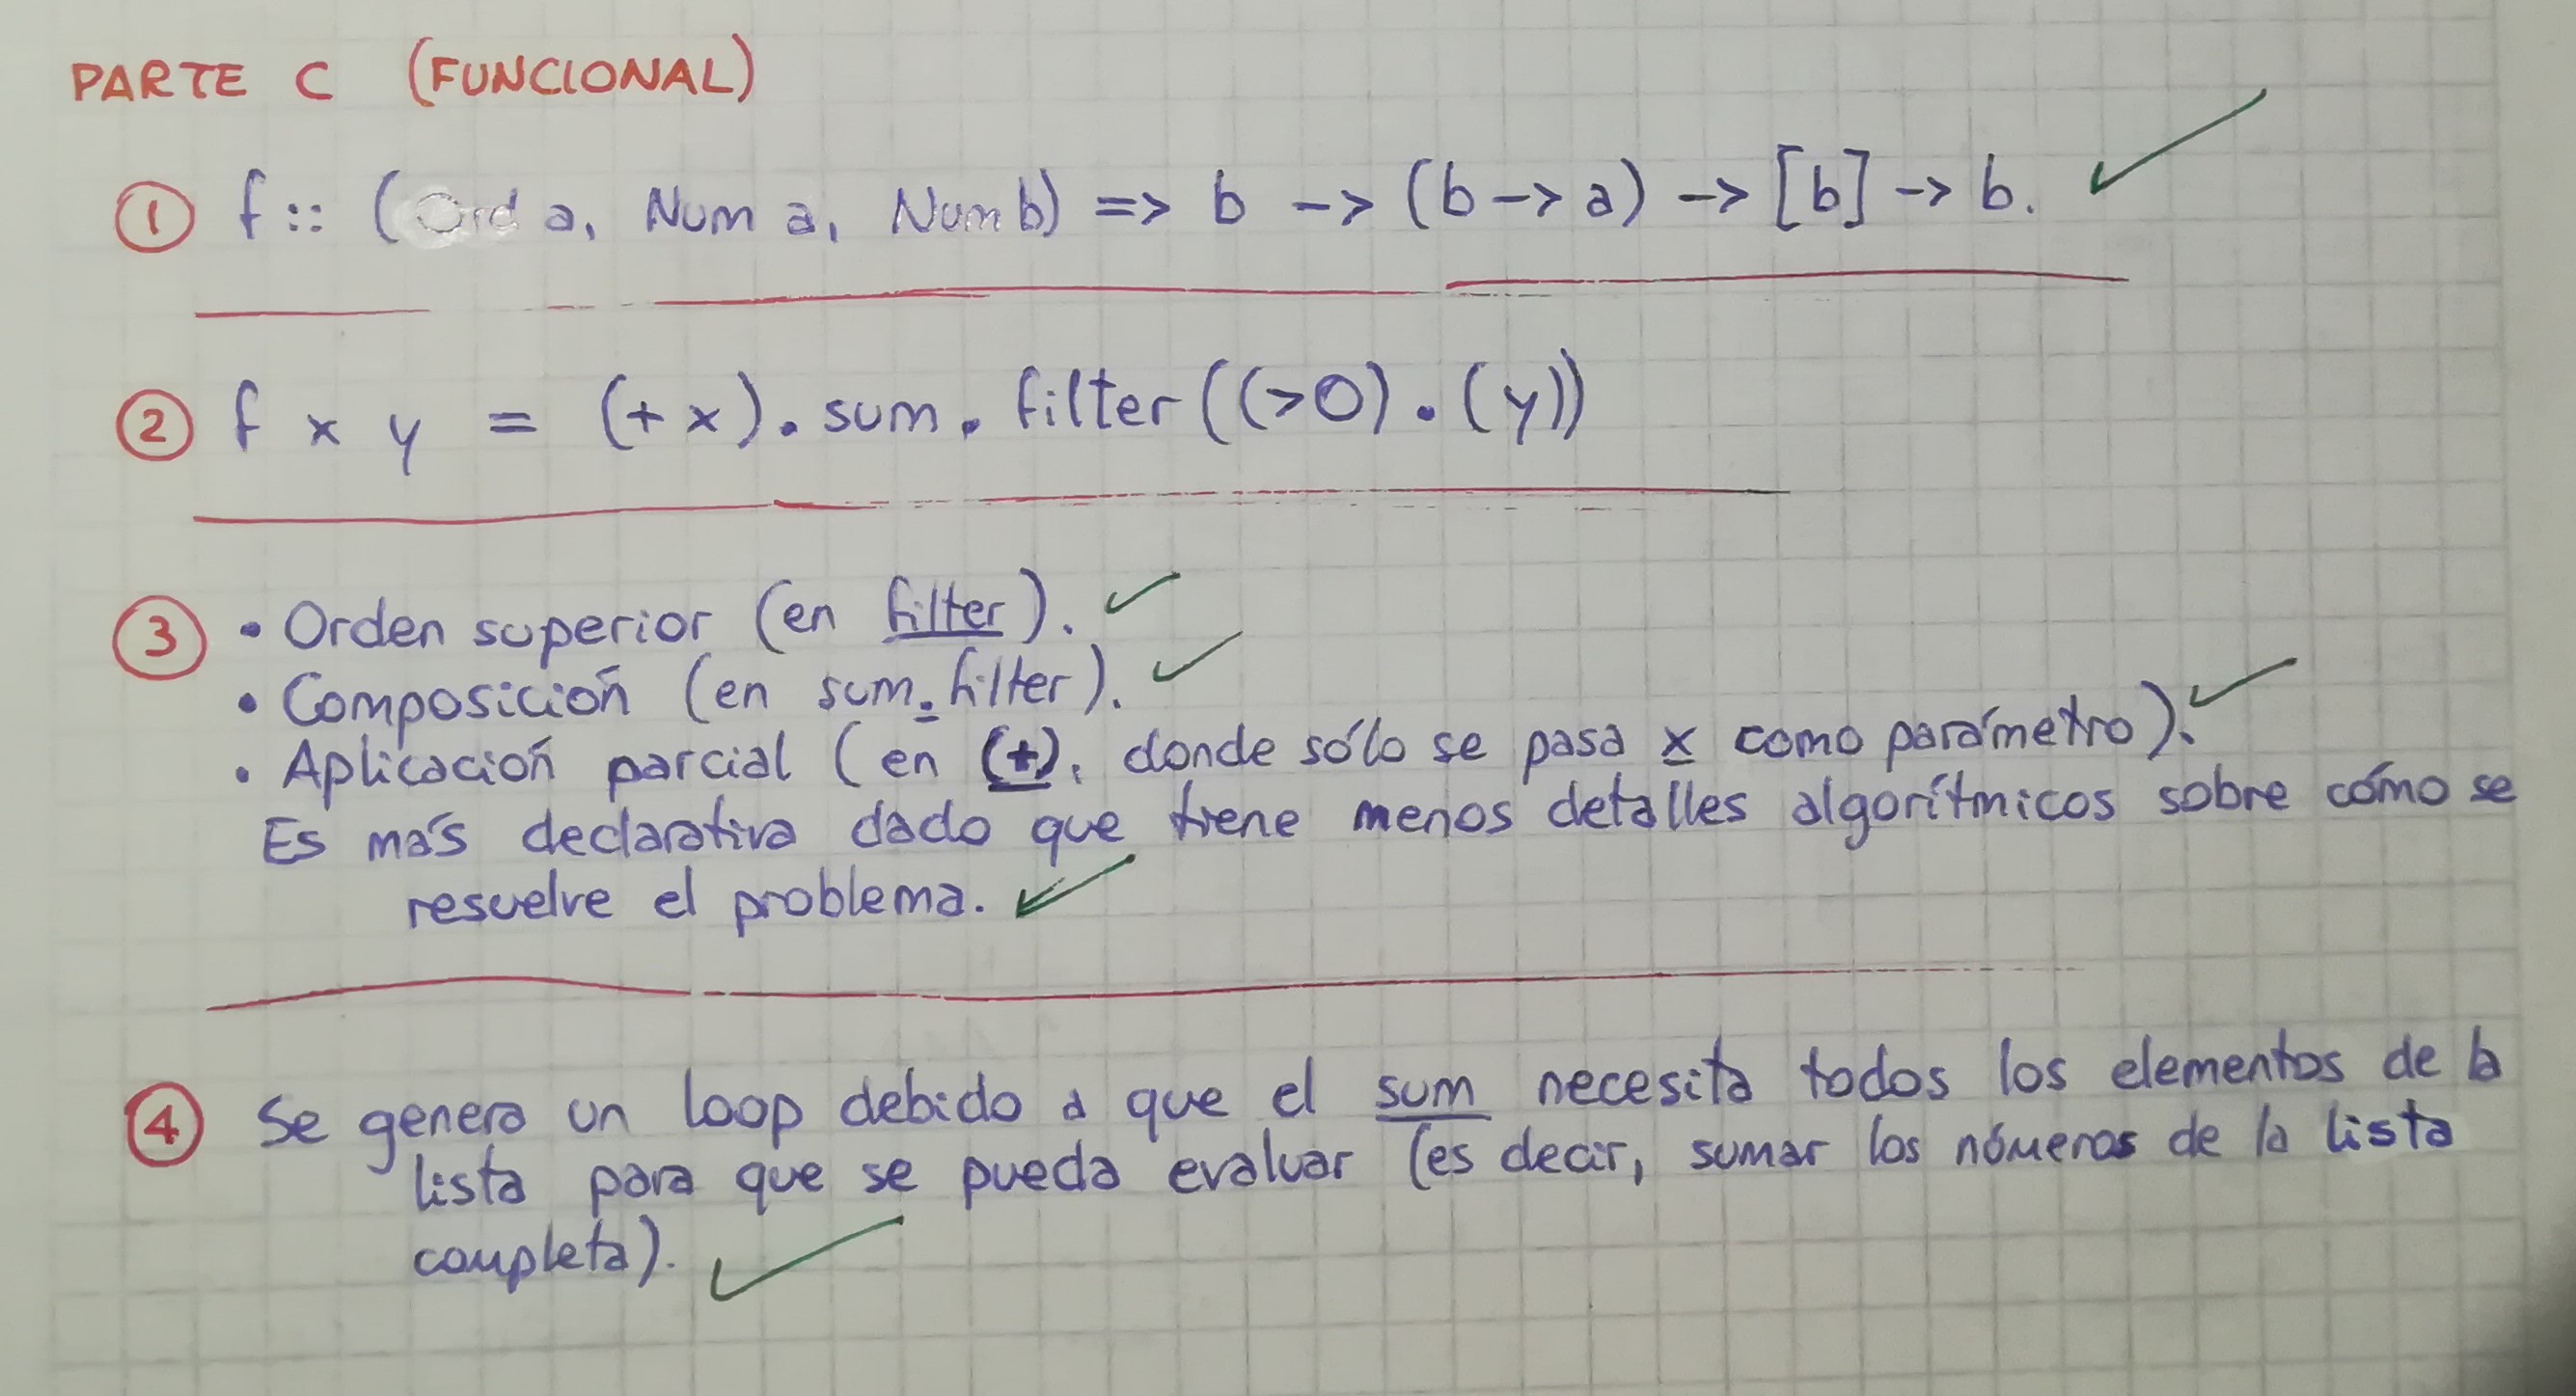 PARTE C (FUNCIONAL)
① f :: (Ord a, Num a, Num b) => b -> (b -> a) -> [b] -> b.
② f x y = (+ x) . sum . filter ((>0) . (y))
③ • Orden superior (en filter).
• Composición (en sum . filter).
• Aplicación parcial (en (+), donde sólo se pasa x como parámetro).
Es más declarativa dado que tiene menos detalles algorítmicos sobre cómo se
resuelve el problema.
④ Se genera un loop debido a que el sum necesita todos los elementos de la
lista para que se pueda evaluar (es decir, sumar los números de la lista
completa).